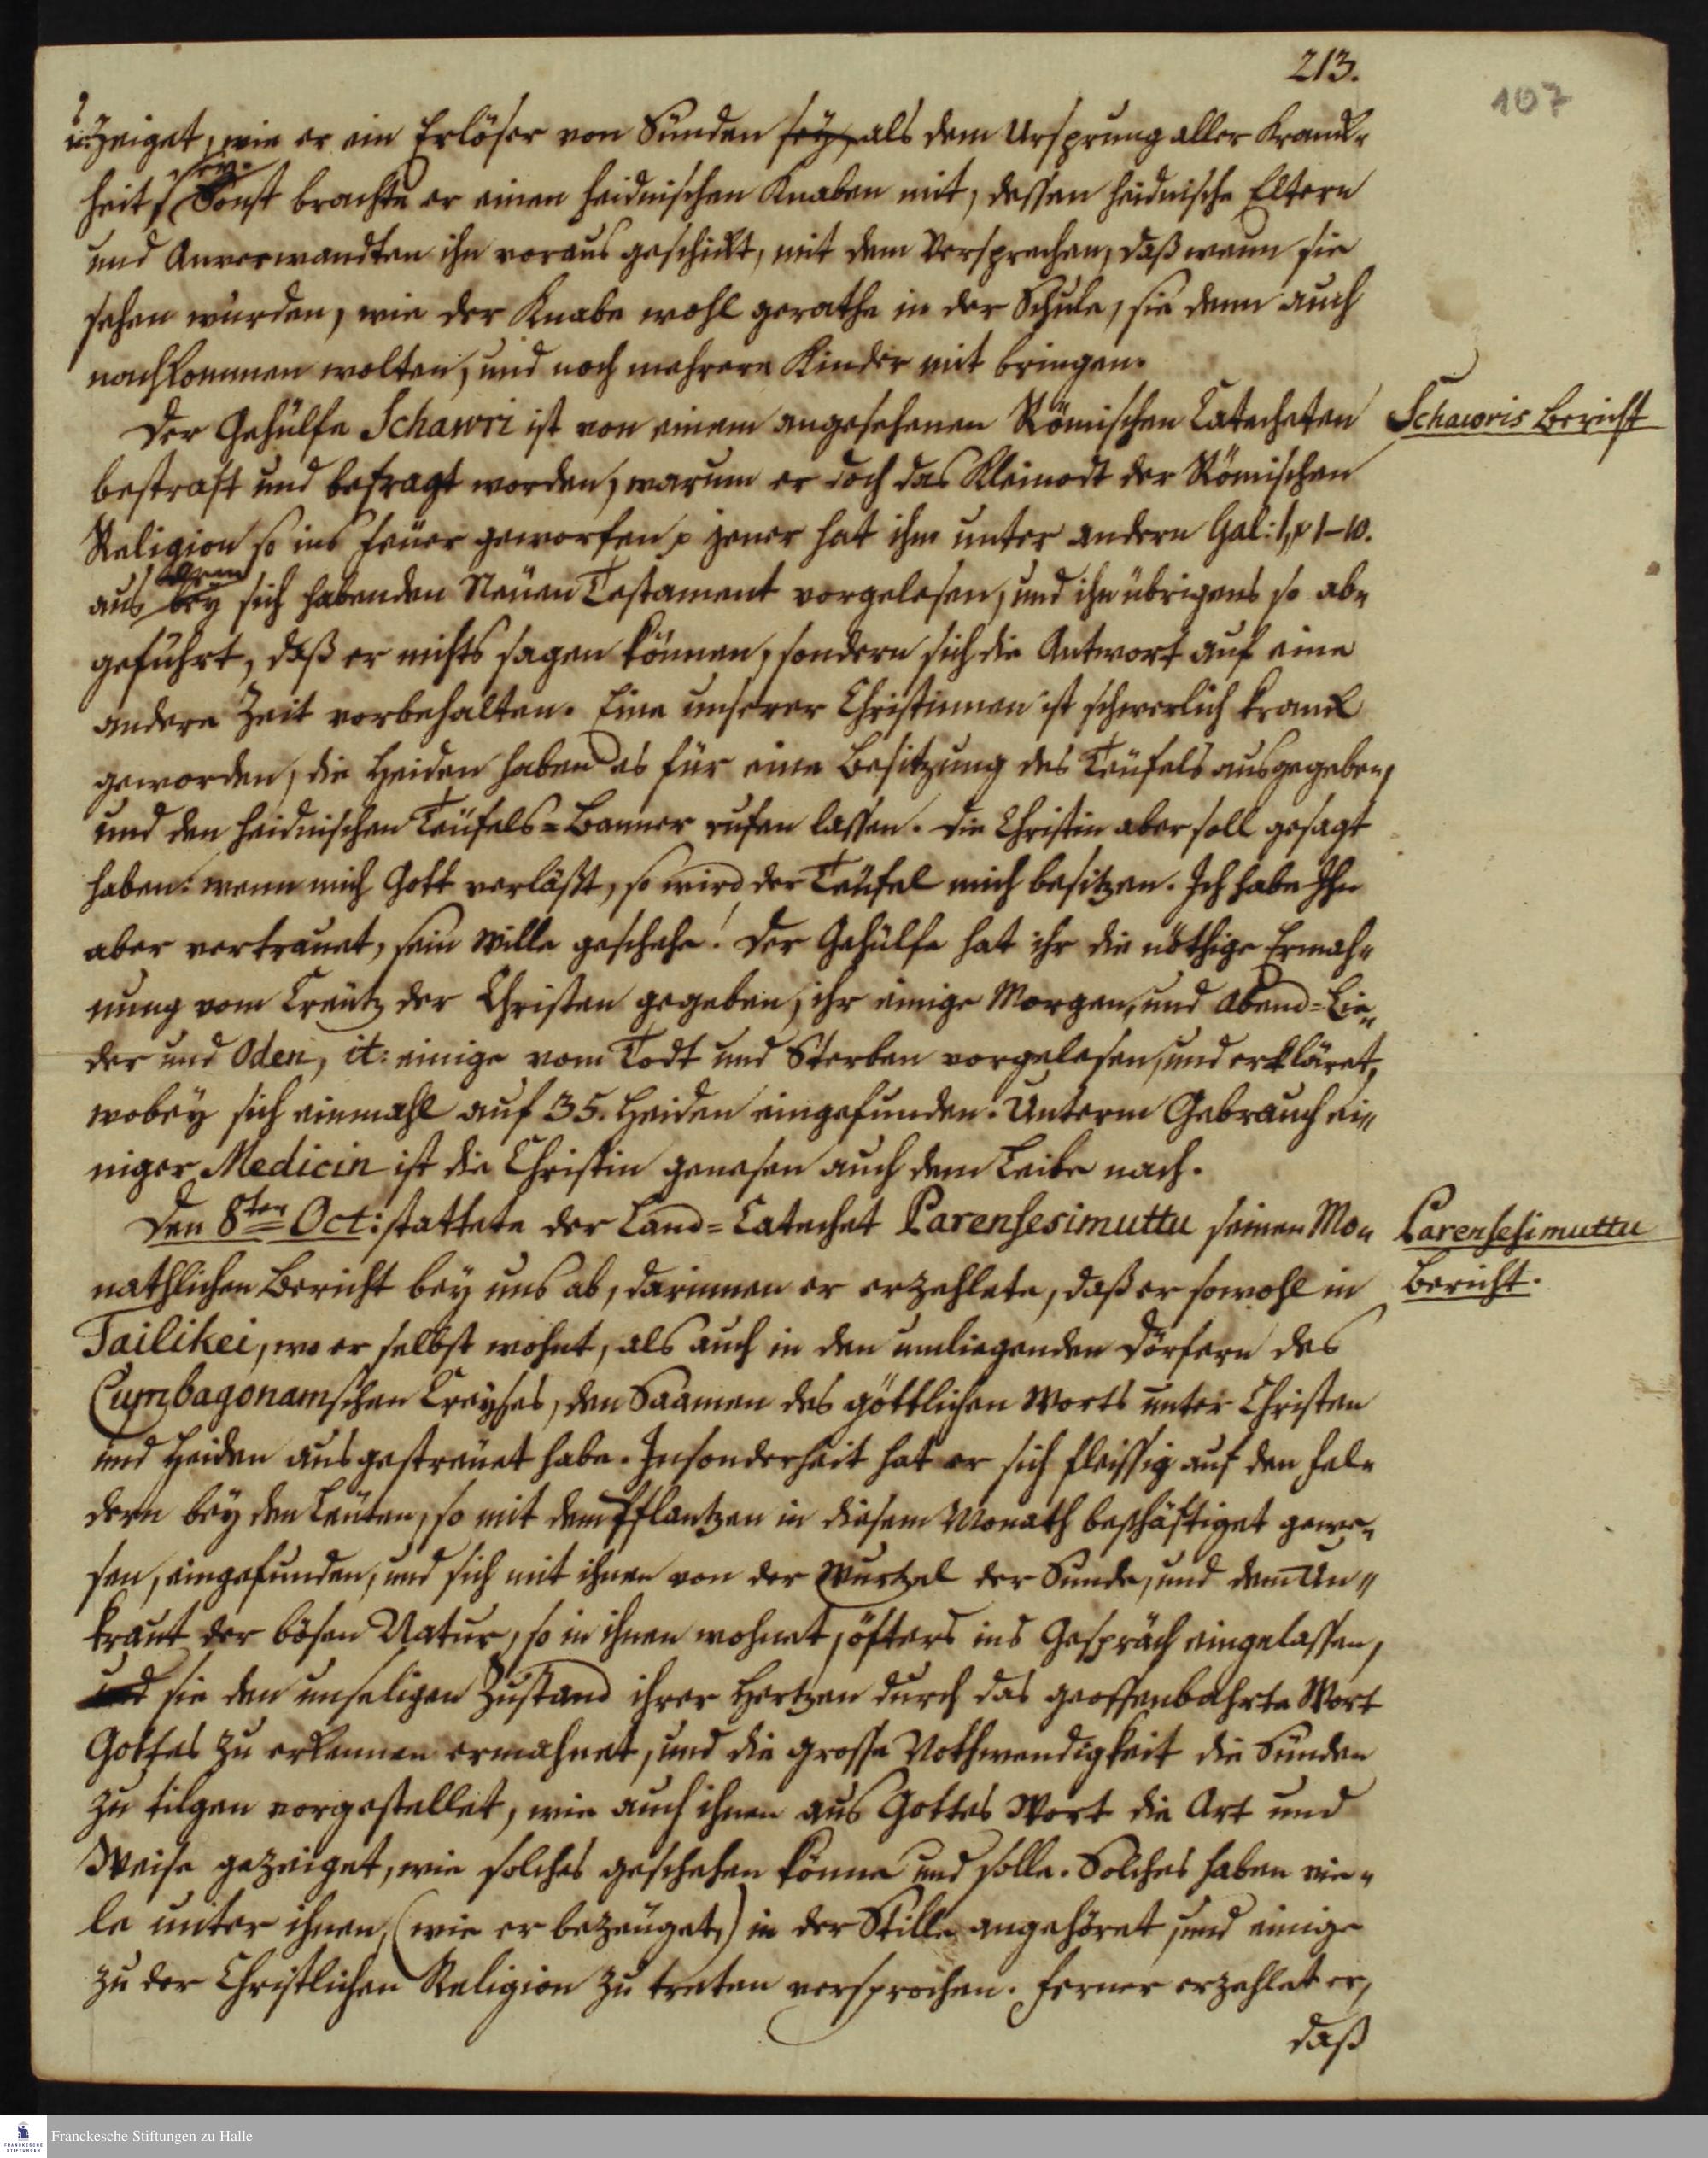 213.
107
u. zeiget, wie er ein Erlöser von Sünden sey, als dem Ursprung aller Kranck„
sey.
heit, Sonst brachte er einen heidnischen Knaben mit, dessen heidnische Eltern
und Anverwandten ihn voraus geschickt, mit dem Versprechen, daß wenn sie
sehen wurden, wie der Knabe wohl gerathe in der Schule, sie denn auch
nachkommen wolten, und noch mehrere Kinder mit bringen.
Der Gehülfe Schawri ist von einem angesehenen Römischen Catecheten
Schawris Bericht
bestraft und befragt worden, warum er doch das Kleinodt der Römischen
Religion so ins Feüer geworfen p jener hat ihm unter andern Gal: 1, v 1–10.
dem
aus bey sich habenden Neüen Testament vorgelesen, und ihn übrigens so ab„
geführt, daß er nichts sagen können, sondern sich die Antwort auf eine
andere Zeit vorbehalten. Eine unserer Christinnen ist schwerlich kranck
geworden, die Heiden haben es für eine Besitzung des Teüfels ausgegeben,
und den heidnischen Teüfels=Banner rufen lassen. Die Christin aber soll gesagt
haben: wenn mich Gott verläßt, so wird der Teüfel mich besitzen. Ich habe Ihm
aber vertrauet, sein Wille geschehe! Der Gehülfe hat ihr die nöthige Ermah„
nung vom Creütz der Christen gegeben, ihr einige Morgen, und Abend=Lie„
der und Oden, it: einige vom Todt und Sterben vorgelesen, und erkläret,
wobey sich einmahl auf 35. Heiden eingefunden. Unterm Gebrauch ei„
niger Medicin ist die Christin genesen auch dem Leibe nach.
Den 8ten Oct: stattete der Land=Catechet Parensesimuttu seinen Mo„
Parensesimuttu
nathlichen Bericht bey uns ab, darinnen er erzehlete, daß er sowohl in
Bericht.
Tailikei, wo er selbst wohnt, als auch in den umliegenden Dörfern des
Cumbagonamschen Creyses, den Saamen des göttlichen Worts unter Christen
und Heiden ausgestreüet habe. Insonderheit hat er sich fleissig auf den Fel„
dern bey den Leüten, so mit dem Pflantzen in diesem Monath beschäftiget gewe„
sen, eingefunden, und sich mit ihnen von der Wurtzel der Sunde, und dem Un„
kraut der bösen Natur, so in ihnen wohnet, öfters ins Gespräch eingelassen,
und sie den unseligen Zustand ihrer Hertzen durch das geoffenbahrte Wort
Gottes zu erkennen ermahnet, und die grosse Nothwendigkeit die Sünden
zu tilgen vorgestellet, wie auch ihnen aus Gottes Wort die Art und
Weise gezeiget, wie solches geschehen könne und solle. Solches haben vie„
le unter ihnen, (wie er bezeüget,) in der Stille angehöret, und einige
zu der Christlichen Religion zu treten versprochen. Ferner erzehlet er,
daß
Franckesche Stiftungen zu Halle